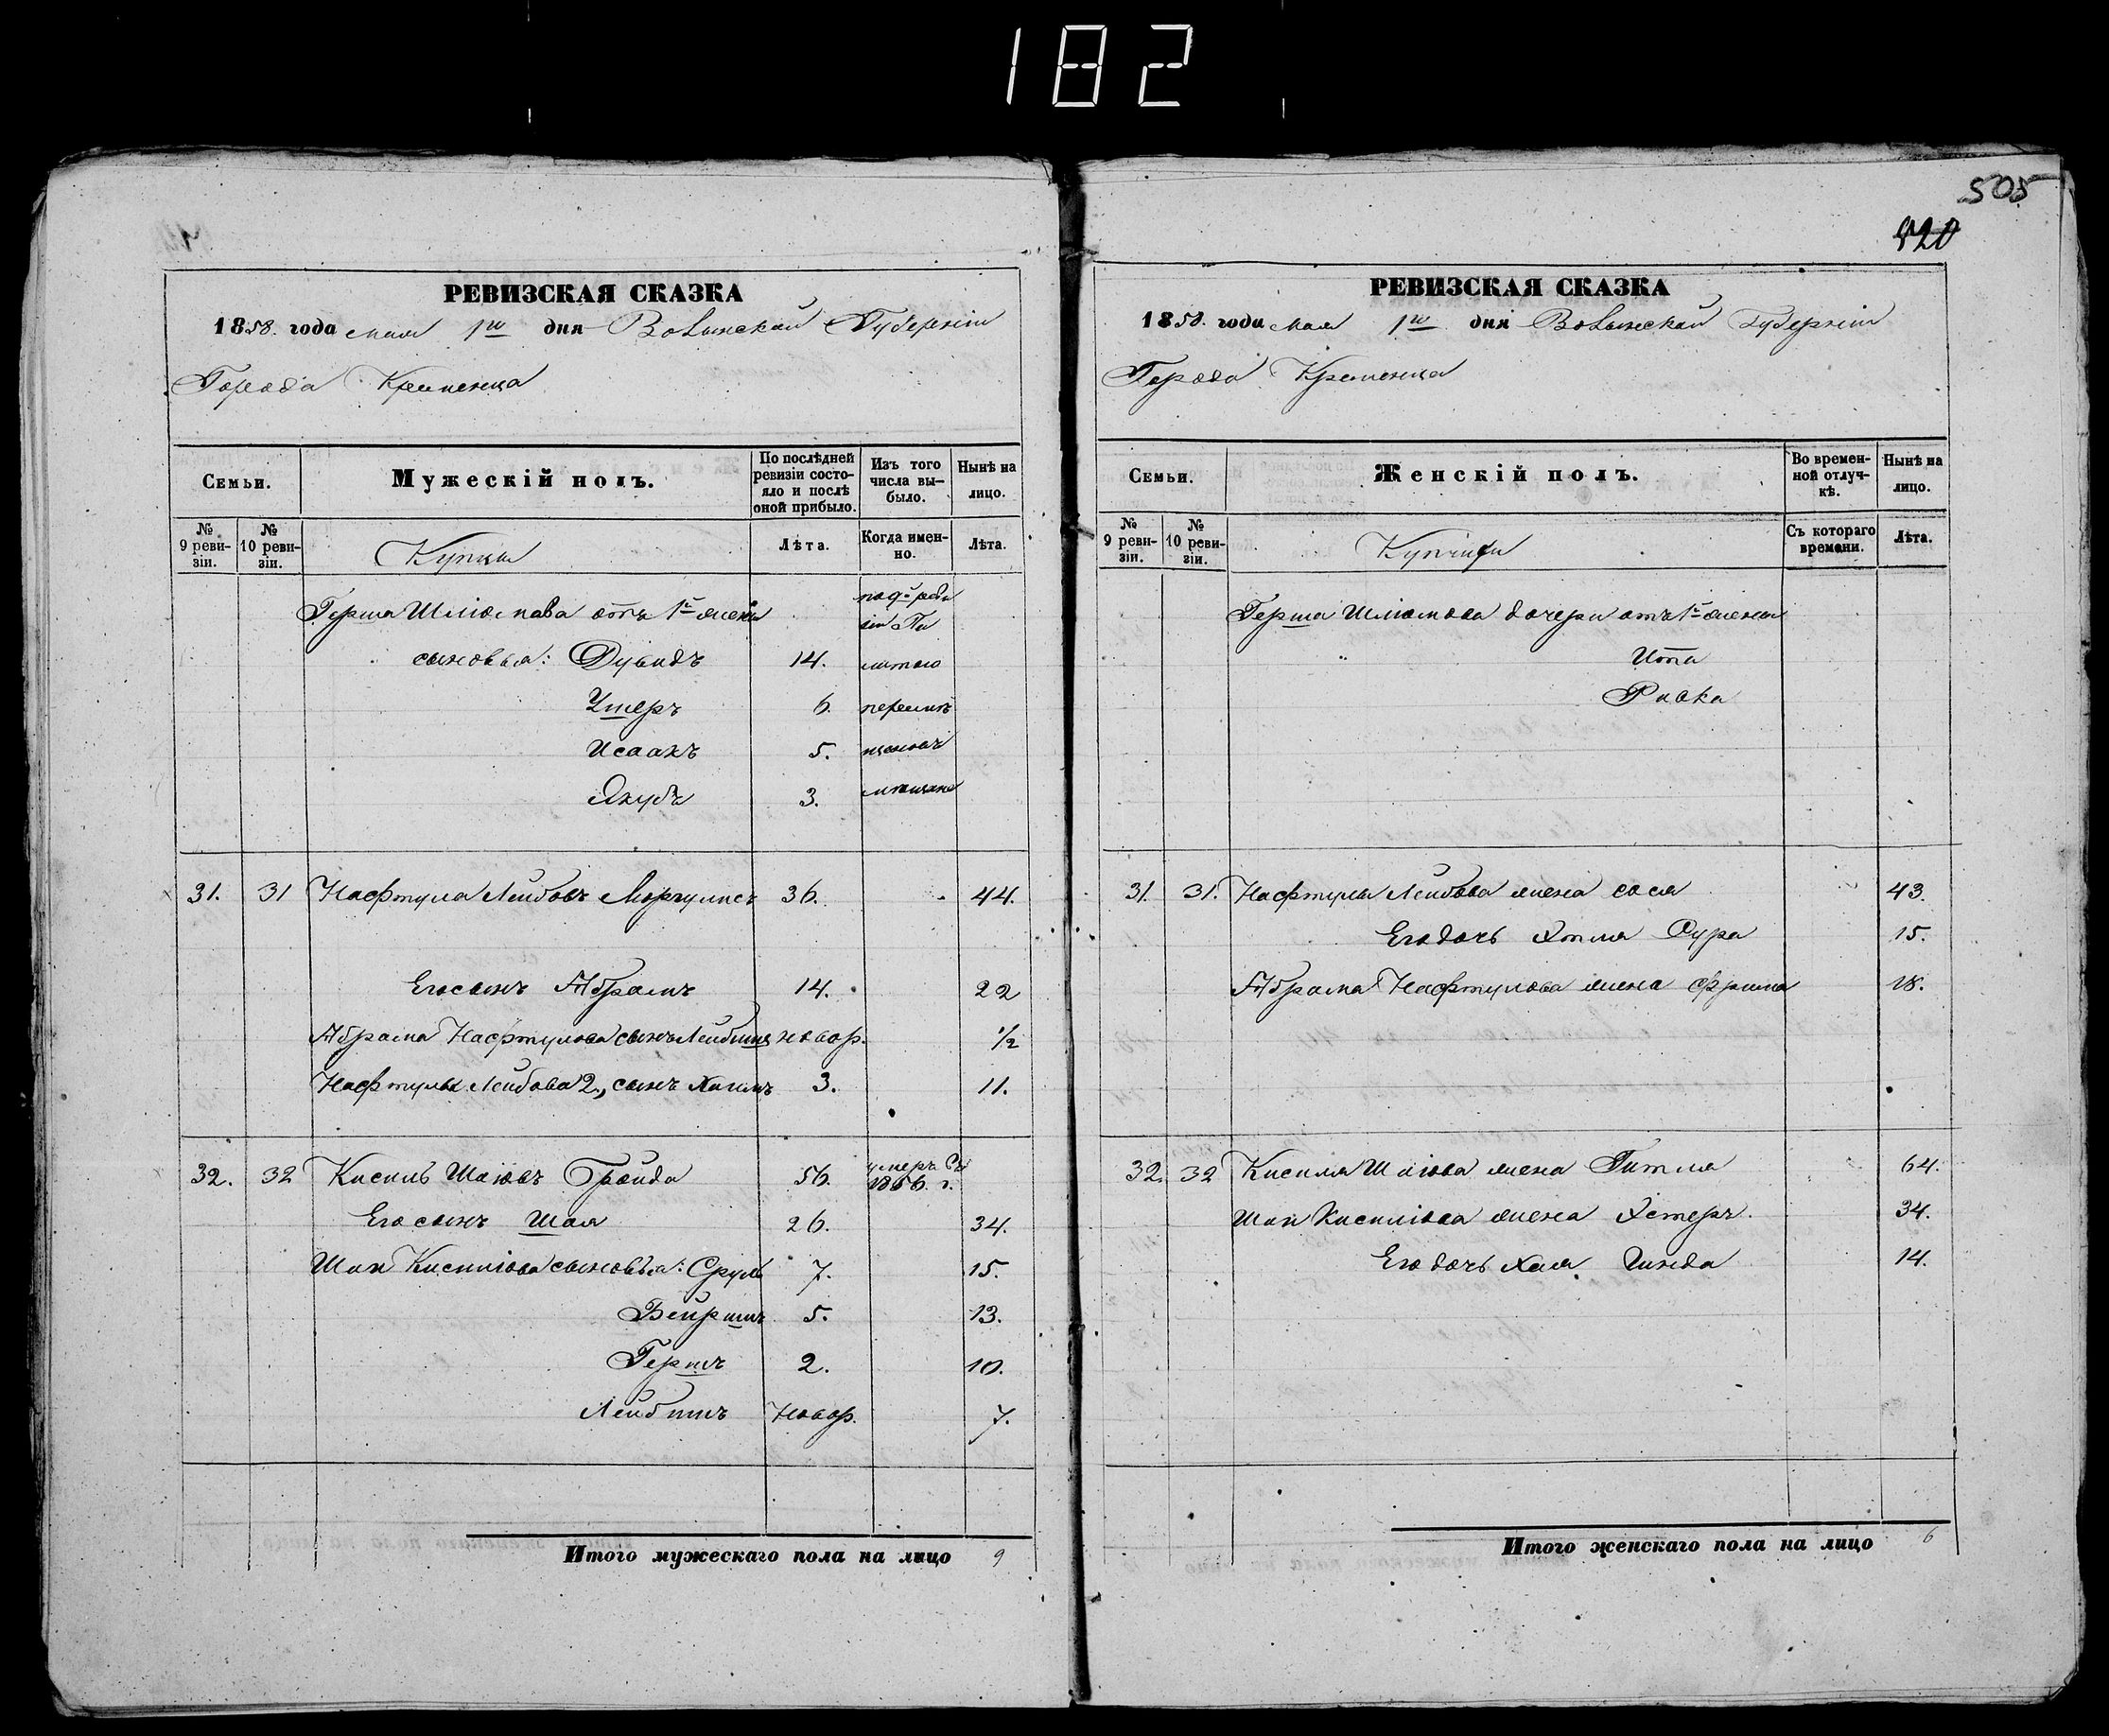 182
РЕВИЗСКАЯ СКАЗКА
1858. года мая 1го дня Волынской Губерніи
Города Кременца
Семьи.
Мужескій полъ.
По послѣдней ревизіи состояло и послѣ оной прибыло.
Изъ того числа выбыло.
Нынѣ на лицо.
№ 9 ревизіи.
№ 10 ревизіи.
Купцы
Лѣта.
Когда именно.
Лѣта.
Герша Шліомова отъ 1й жены
сыновья: Дувидъ 14.
Ушеръ 6.
Исаакъ 5.
Якубъ 3.
31. 31 Нафтула Лейбовъ Маргулисъ 36. 44.
Его сынъ Абрамъ 14. 22
Абрама Нафтулова сынъ Лейбишъ новор. 1/2
Нафтулы Лейбова 2., сынъ Хаимъ 3. 11.
32. 32 Кисиль Шаіовъ Бройда 56. умеръ въ 1856. г.
Его сынъ Шая 26. 34.
Шаи Кисиліова сыновья: Сруль 7. 15.
Бейришъ 5. 13.
Гершъ 2. 10.
Лейбишъ Новор. 7.
Итого мужескаго пола на лицо 9
505
520
РЕВИЗСКАЯ СКАЗКА
1858. года мая 1го дня Волынской Губерніи
Города Кременца
Семьи.
Женскій полъ.
Во временной отлучкѣ.
Нынѣ на лицо.
№ 9 ревизіи.
№ 10 ревизіи.
Купчихи
Съ котораго времени.
Лѣта.
Герша Шліомова дочери отъ 1й жены
Ита
Ривка
31. 31. Нафтулы Лейбова жена Сося 43.
Его дочь Этля Сура 15.
Абрама Нафтулова жена Фрима 18.
32. 32 Кисиля Шаіова жена Гитля 64.
Шаи Кисиліова жена Эстеръ. 34.
Его дочь Хая Гинда 14.
Итого женскаго пола на лицо 6